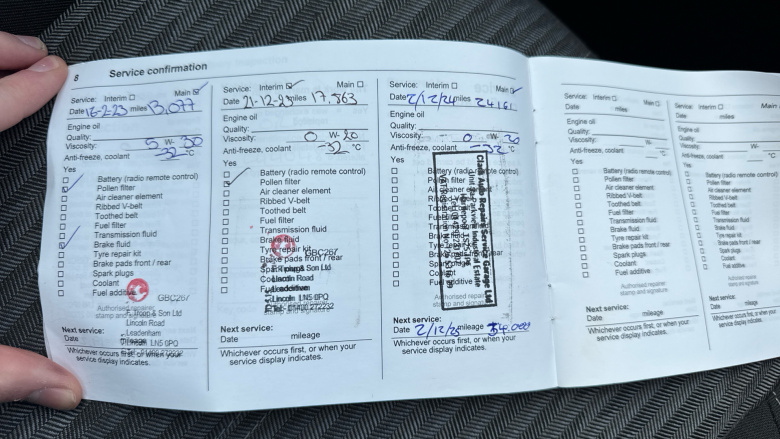 8 Service confirmation
Service: Interim Main
Date 16-2-23 miles 13,077
Engine oil
Quality:
Viscosity: 5 W- 30
Anti-freeze, coolant -32 °C
Yes
Battery (radio remote control)
Pollen filter
Air cleaner element
Ribbed V-belt
Toothed belt
Fuel filter
Transmission fluid
Brake fluid
Tyre repair kit
Brake pads front / rear
Spark plugs
Coolant
Fuel additive
GBC267
Authorised repairer
stamp and signature
Lincoln Road
Leadenham
LN5 0PQ
Next service:
Date mileage
Whichever occurs first, or when your
service display indicates.
Service: Interim Main
Date 21-12-23 miles 17,363
Engine oil
Quality:
Viscosity: 0 W- 20
Anti-freeze, coolant -32 °C
Yes
Battery (radio remote control)
Pollen filter
Air cleaner element
Ribbed V-belt
Toothed belt
Fuel filter
Transmission fluid
Brake fluid
Tyre repair kit
GBC267
Brake pads front / rear
& Son Ltd
Lincoln Road
Lincoln LN5 0PQ
Next service:
Date mileage
Whichever occurs first, or when your
service display indicates.
Service: Interim Main
Date 2/12/24 miles 24161
Engine oil
Quality:
Viscosity: 0 W- 20
Anti-freeze, coolant -32 °C
Yes
Battery (radio remote control)
Pollen filter
Authorised repairer
Repair & Service Garage Ltd
Next service:
Date 2/12/25 mileage 34,000
Whichever occurs first, or when your
service display indicates.
Service: Interim Main
Date miles
Engine oil
Quality:
Viscosity: W-
Anti-freeze, coolant °C
Yes
Battery (radio remote control)
Pollen filter
Air cleaner element
Ribbed V-belt
Toothed belt
Fuel filter
Transmission fluid
Brake fluid
Tyre repair kit
Brake pads front / rear
Spark plugs
Coolant
Fuel additive
Authorised repairer
stamp and signature
Next service:
Date mileage
Whichever occurs first, or when your
service display indicates.
Service: Interim Main
Date miles
Engine oil
Quality:
Viscosity: W-
Anti-freeze, coolant °C
Yes
Battery (radio remote control)
Pollen filter
Air cleaner element
Ribbed V-belt
Toothed belt
Fuel filter
Transmission fluid
Brake fluid
Tyre repair kit
Brake pads front / rear
Spark plugs
Coolant
Fuel additive
Authorised repairer
stamp and signature
Next service:
Date mileage
Whichever occurs first, or when your
service display indicates.